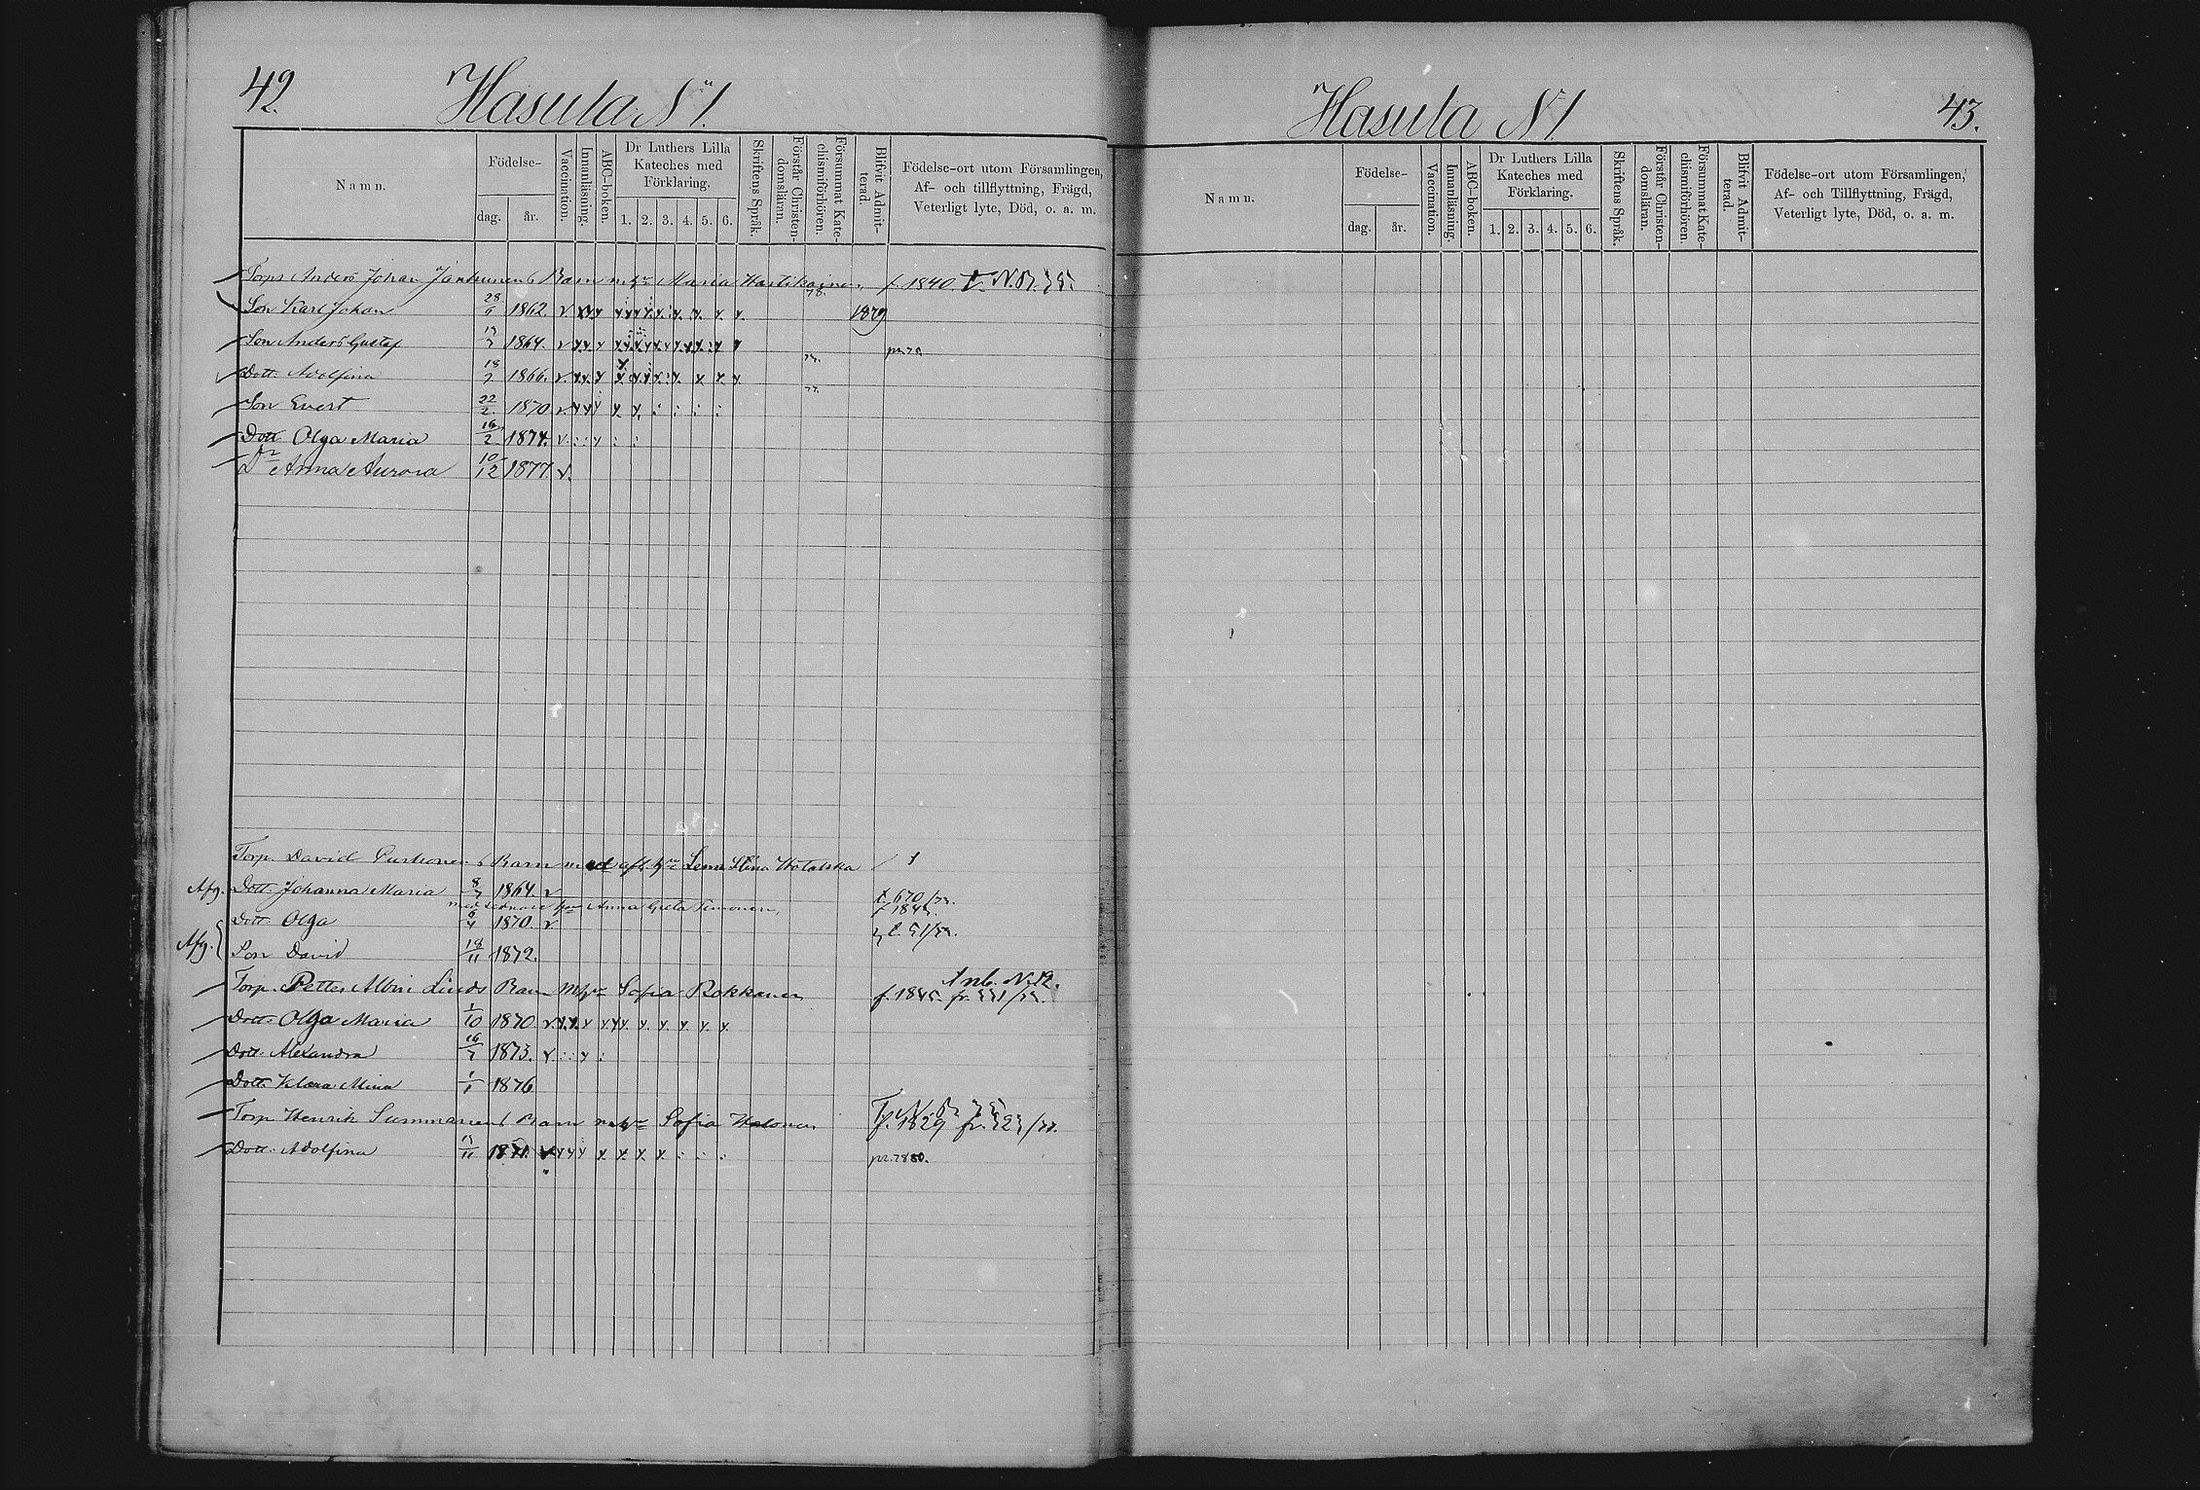 42.
Hasula N:1.
Namn.
Födelse-
dag. år.
Vaccination.
Innanläsning.
ABC-boken.
Dr Luthers Lilla
Kateches med
Förklaring.
1. 2. 3. 4. 5. 6.
Skriftens Språk.
Förstår Christen-
domsläran.
Försummat Kate-
chismiförhören.
Blifvit Admit-
terad.
Födelse-ort utom Församlingen,
Af- och tillflyttning, Frägd,
Veterligt lyte, Död, o. a. m.
Torps Anders Johan Jantunens Barn m. hu Maria Hartikainen f. 1840.
Son Karl Johan 28/6 1862. 1879
Son Anders Gustaf 1864.
Dott. Adolfina 18/7 1866.
Son Evert 22/2 1870
Dott Olga Maria 16/2 1874.
Dr Anna Aurora 10/12 1877.
Torp. David Barn med afl. hu Lena Stina
Afg. Dott. Johanna Maria 8/7 1864.
med sednare hu Anna Greta
Dott. Olga 6/4 1870.
Afg. Son David 18/11 1872.
Torp. Petter Albin Linds Barn m hu Sofia Rokkanen
Dott. Olga Maria 1/10 1870
Dott. Alexandra 16/7 1873.
Dott. Klara Mina 1/1 1876
Torp Henrik Summanens Barn m hu Sofia Halonen f. 1829
Dott. Adolfina 1871. 1880.
Hasula N:1
43.
Namn.
Födelse-
dag. år.
Vaccination.
Innanläsning.
ABC-boken.
Dr Luthers Lilla
Kateches med
Förklaring.
1. 2. 3. 4. 5. 6.
Skriftens Språk.
Förstår Christen-
domsläran.
Försummat Kate-
chismiförhören.
Blifvit Admit-
terad.
Födelse-ort utom Församlingen,
Af- och Tillflyttning, Frägd,
Veterligt lyte, Död, o. a. m.